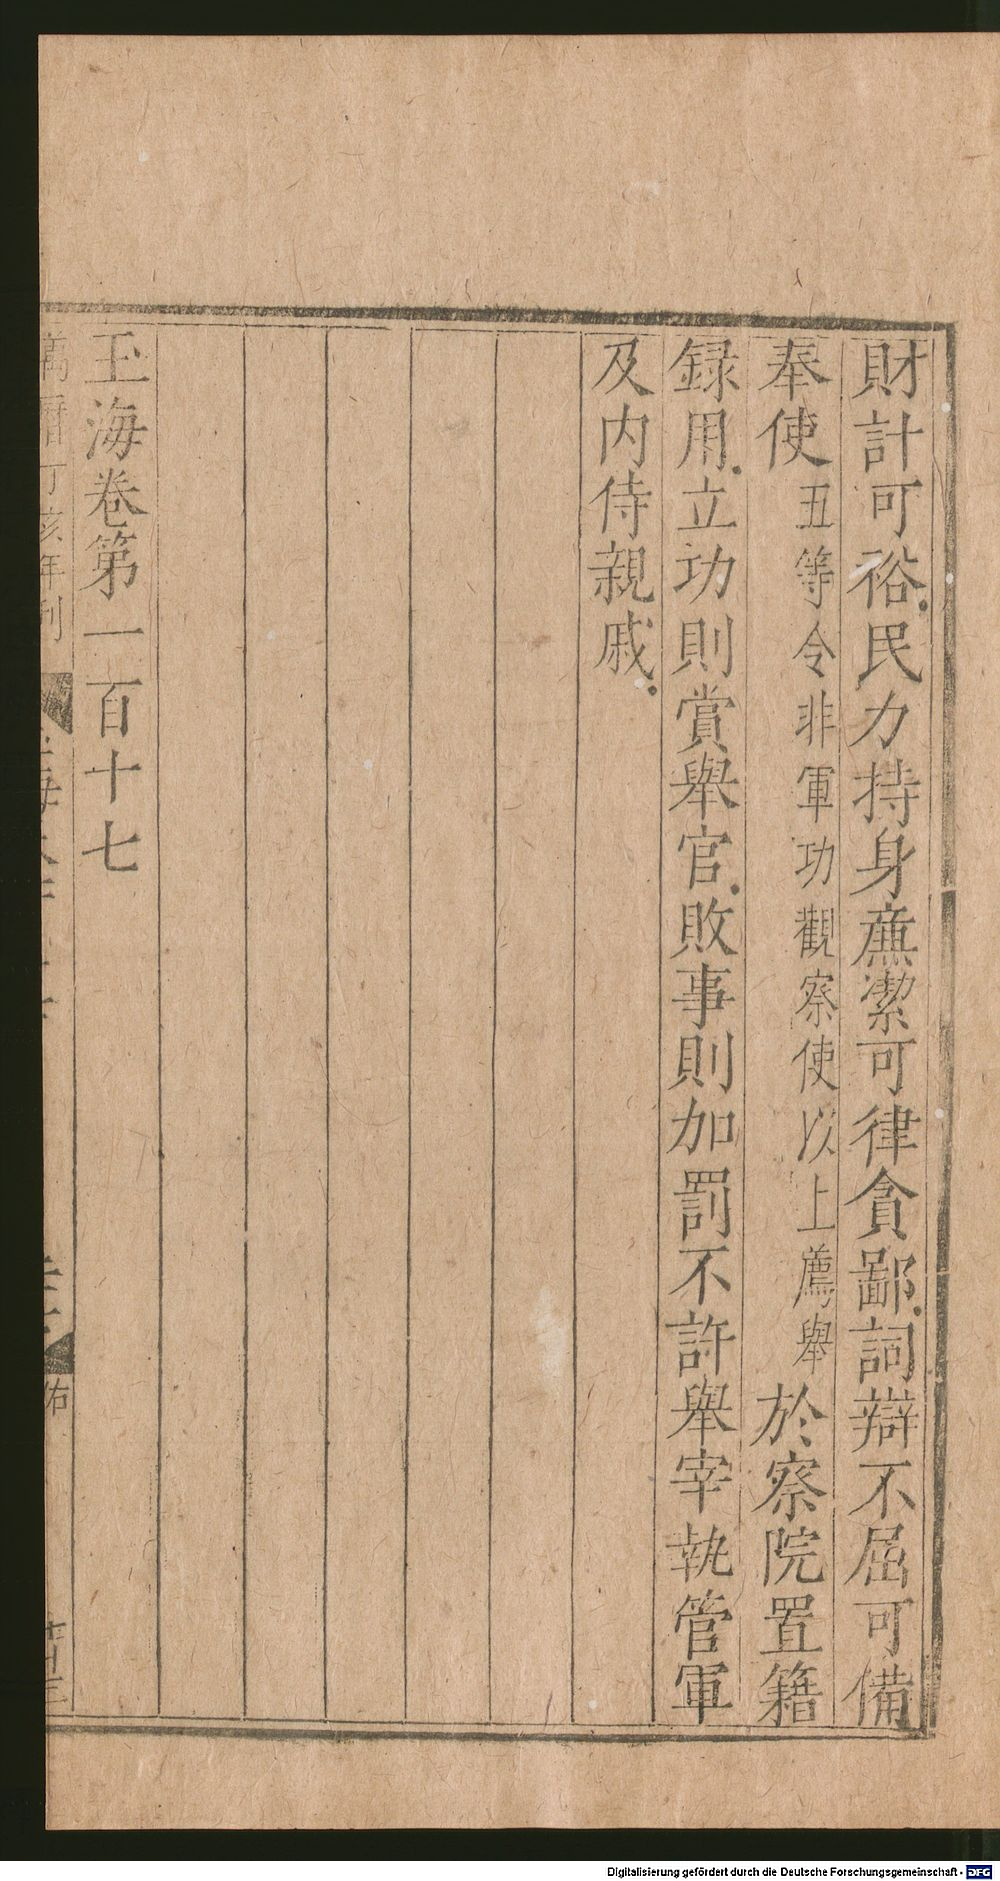 財計可裕民力持身廉潔可律貪鄙詞辯不屈可備
奉使五等令非軍功觀察使以上薦舉於察院置籍
録用立功則賞舉官敗事則加罰不許舉宰執管軍
及内侍親戚
玉海卷第一百十七
萬曆丁亥年刊
Digitalisierung gefördert durch die Deutsche Forschungsgemeinschaft - DFG